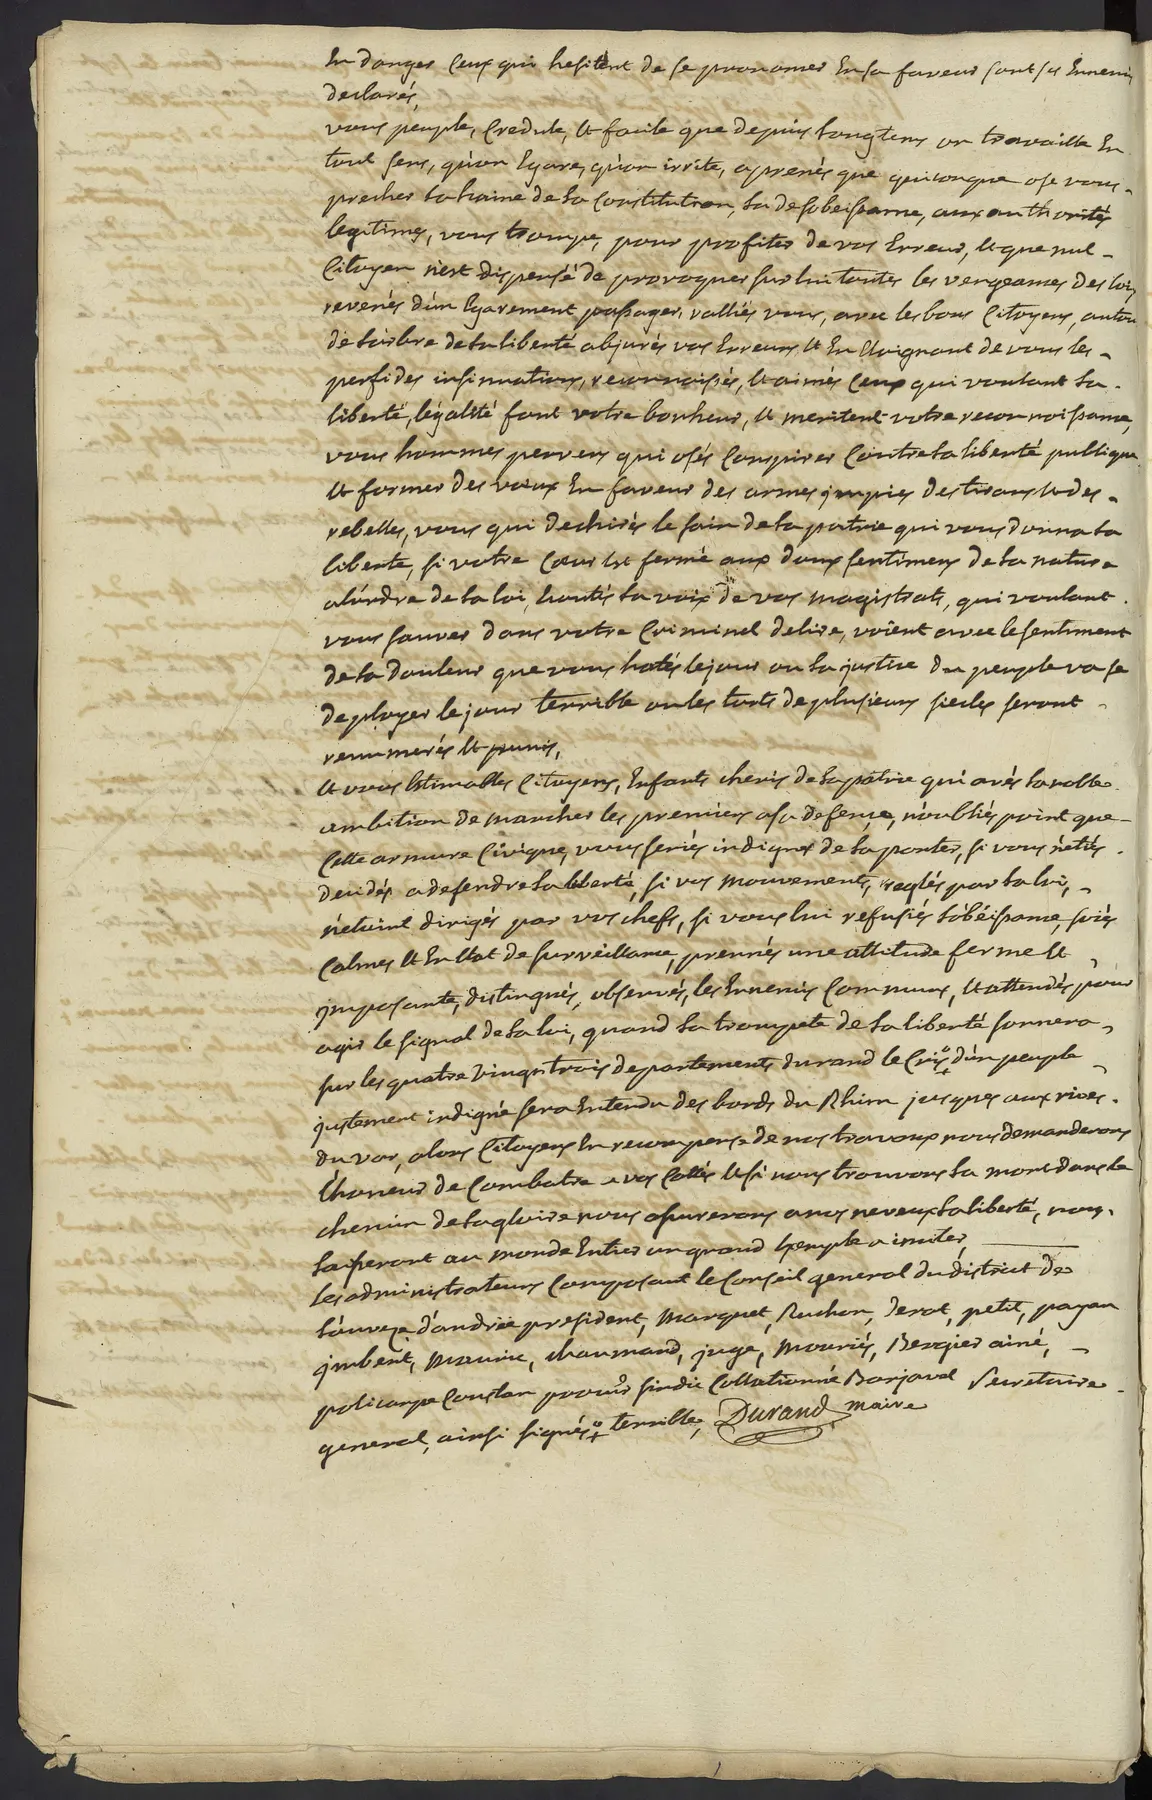 En danger ceux qui hesitent de se prononcer En sa faveur sont ses Ennemis
declarés,
vous peuple, Credule, et facile que depuis longtems on travaille En
tout sens, qu'on Egare, qu'on irrite, aprenés que quiconque ose vous
precher la haine de la Constitution, la desobeissance, aux authorités
legitimes, vous trompe, pour profiter de vos Erreurs, et que nul
Citoyen n'est dispensé de provoquer sur lui toutes les vengeances des loix
revenés d'un Egarement passager, ralliés vous, avec les bons Citoyens, autour
de l'arbre de la liberté abjurés vos Erreurs, et En Eloignant de vous les
perfides insinuations, reconnoissés, et aimés Ceux qui voulant la
liberté, legalité font votre bonheur, et meritent votre reconnoissance,
vous hommes pervers qui osés Conspirer Contre la liberté publique
et former des vœux En faveur des armes jmpies des tirans et des
rebelles, vous qui dechirés le sain de la patrie qui vous donna la
liberté, si votre Cœur Est fermé aux doux sentimens de la nature
a l'ordre de la loi, Ecoutés la voix de vos magistrats, qui voulant
vous sauver dans votre Criminel delire, voient avec le sentiment
de la douleur que vous hatés le jour ou la justice du peuple va se
deployer le jour terrible ou les torts de plusieurs siecles seront
renumerés et punis,
Et vous Estimables Citoyens, Enfants cheris de la patrie qui avés la noble
ambition de marcher les premiers a sa defense, n'oubliés point que
Cette armure Civique, vous seriés indignes de la porter, si vous n'etiés
decidés a defendre la liberté, si vos mouvements, reglés par la loi,
n'etoint dirigés par vos chefs, si vous lui refusiés l'obéissance, soiés
Calmes et En Etat de surveillance, prennés une attitude ferme et
jmposante, distingués, observés, les Ennemis Communs, et attendés pour
agir le signal de la loi, quand la trompete de la liberté sonnera
sur les quatre vingt trois departements durand le Cris d'un peuple
justement indigné sera Entendu des bords du Rhim jusques aux rives
du var, alors Citoyens En recompense de nos travaux nous demanderons
l'honeur de Combatre a vos Cottés et si nous trouvons la mort dans le
chemin de la gloire nous assurerons a nos neveux la liberté, nous
laisseront au monde Entier un grand Exemple a imiter,
Les administrateurs Composant le Conseil general du district de
l'ouveze d'andrée president, Marquet, Ruchon, Derat, petit, payan
jmbert, Mauric, chaumard, juge, Mouriés, Bergier ainé,
policarpe Constan procur sindic Collationné Barjavel Secretaire
general, ainsi signés, terrible, Durand maire